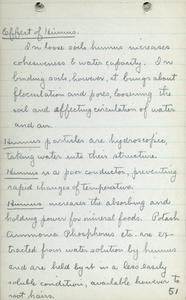 Effect of Humus.
In loose soils humus increases
cohesiveness & water capacity. In
binding soils, however, it brings about
flocculation and pores, loosening the
soil and affecting circulation of water
and air.
Humus particles are hydroscopic,
taking water into their structure.
Humus is a poor conductor, preventing
rapid changes of temperature.
Humus increases the absorbing and
holding power for mineral foods. Potash
Ammonia Phosphorus etc. are ex-
tracted from water solution by humus
and are held by it in a less easily
soluble condition, available however to
root hairs.
51